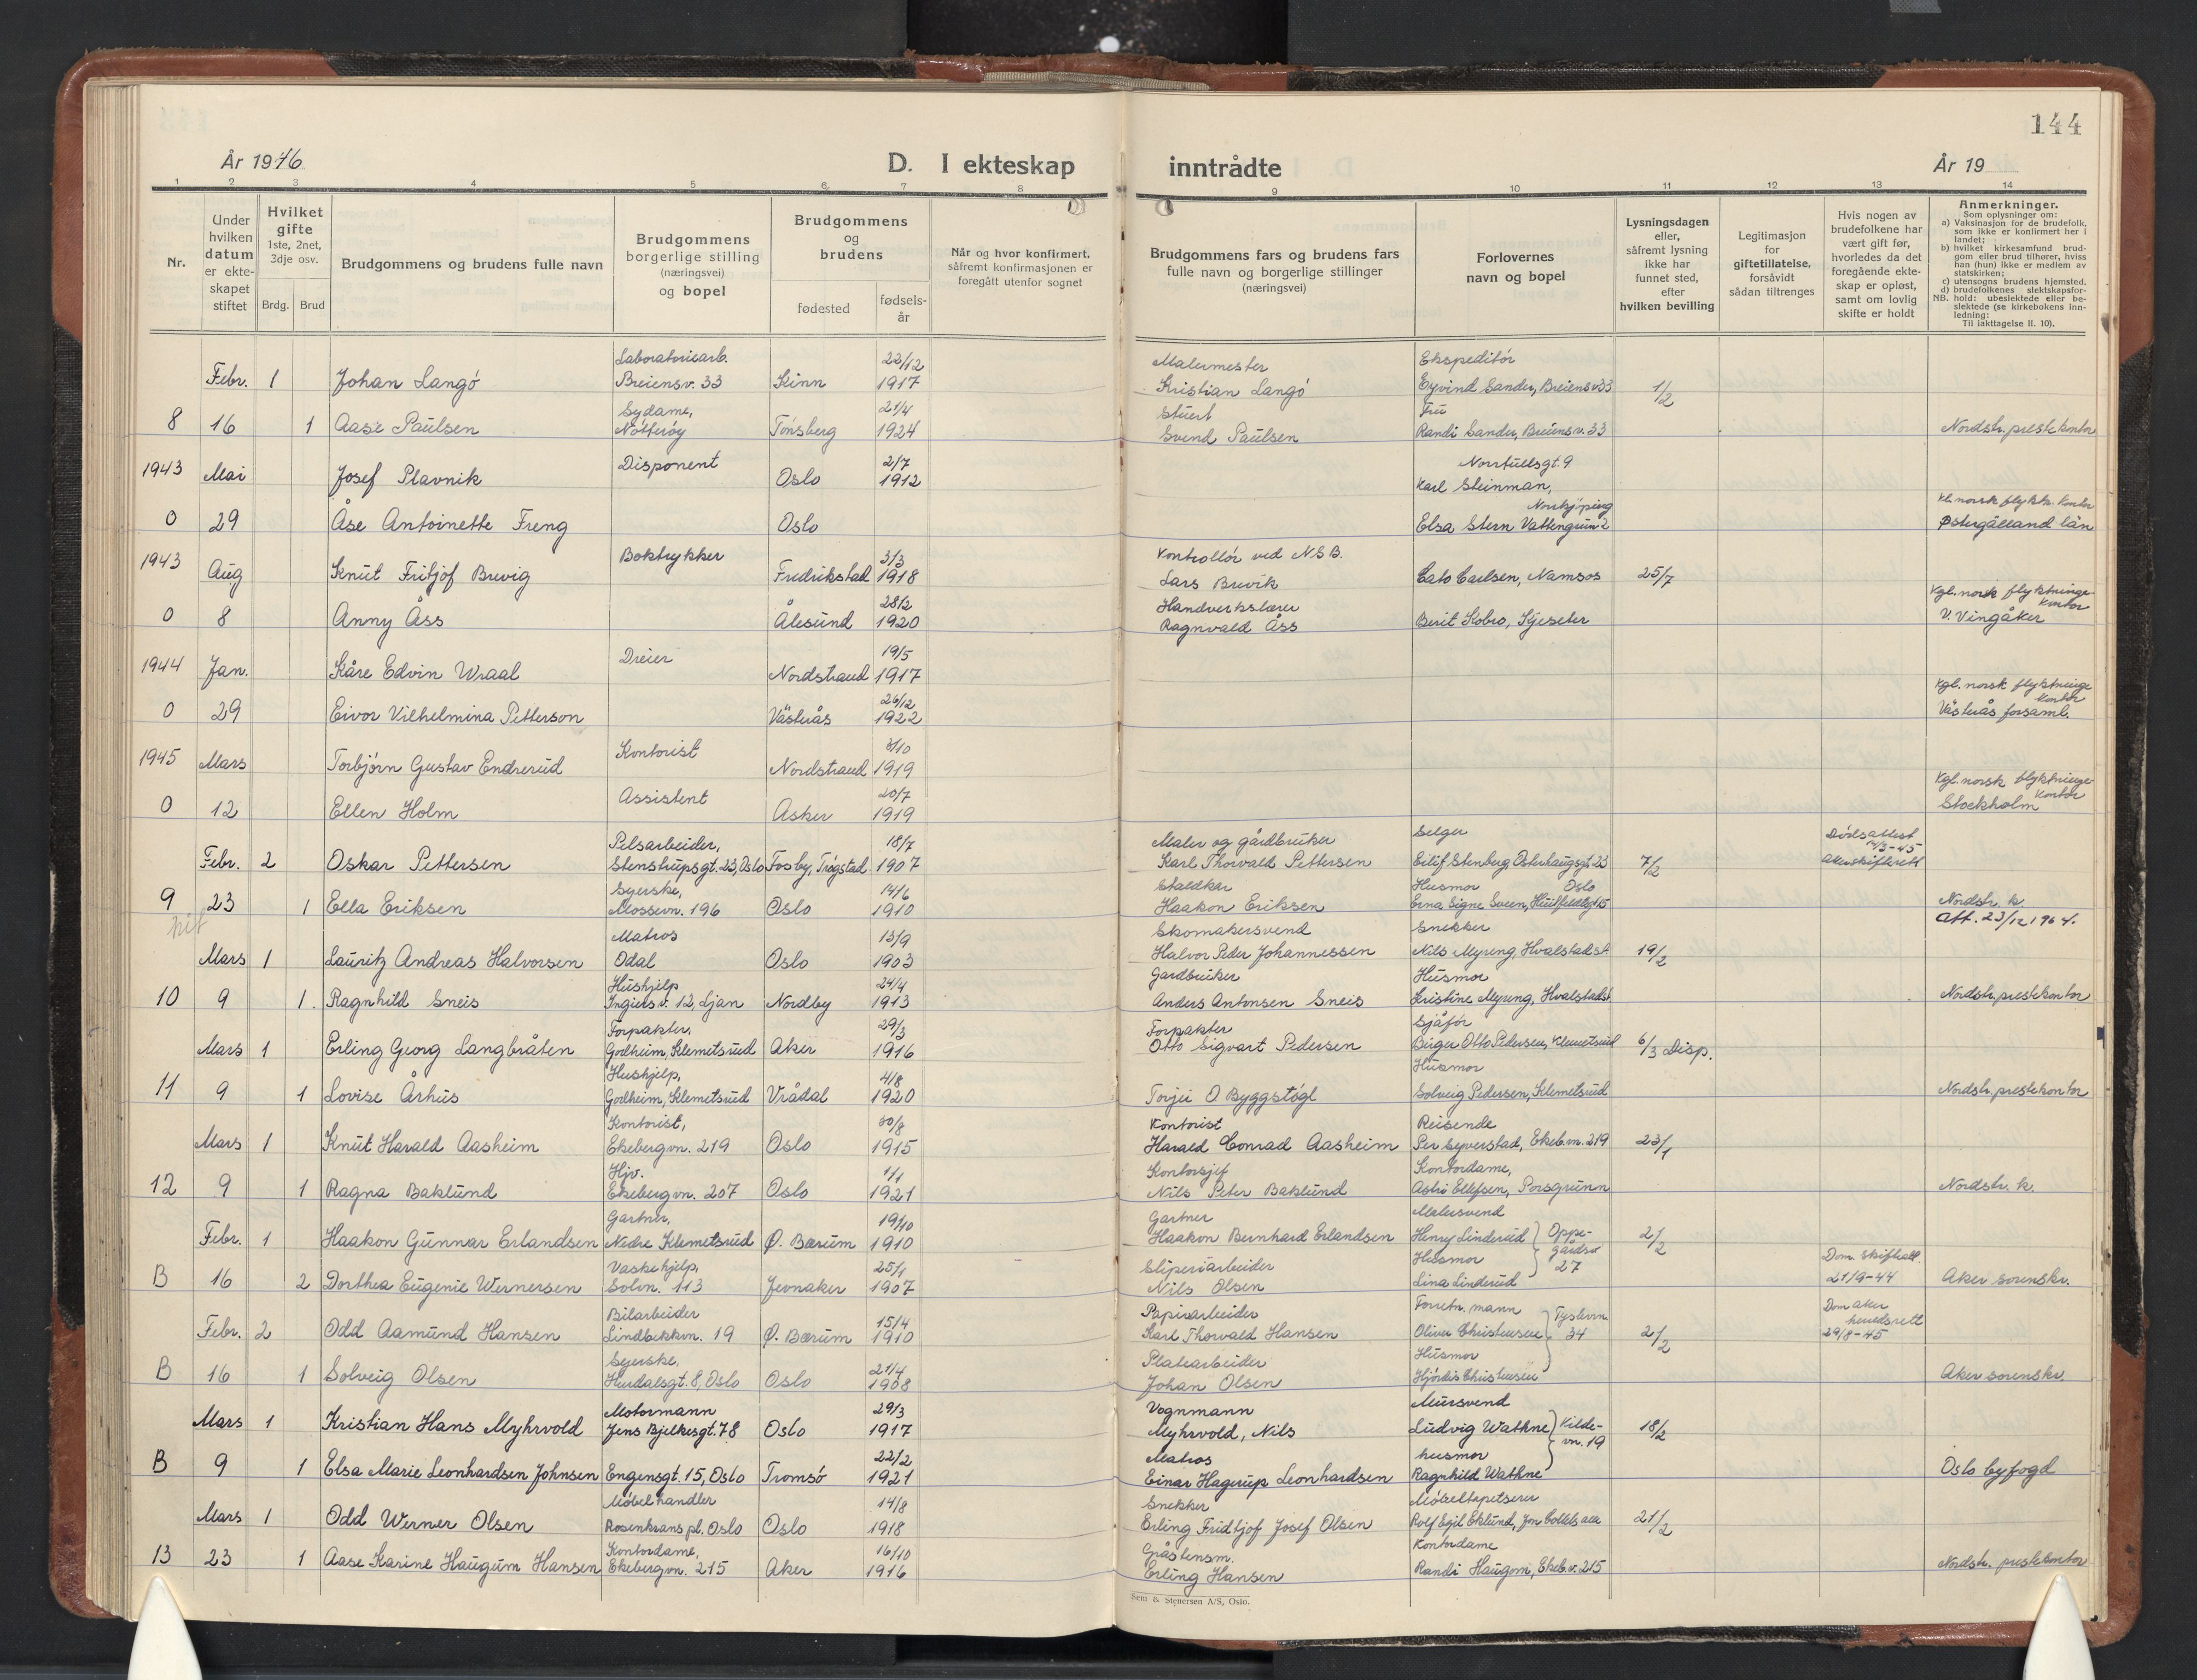 144
År 1946
D. I ekteskap inntrådte
År 19
1 2 3 4 5 6 7 8 9 10 11 12 13 14
Nr.
Under hvilken datum er ekte- skapet stiftet
Hvilket gifte 1ste, 2net, 3dje osv.
Brdg. Brud
Brudgommens og brudens fulle navn
Brudgommens borgerlige stilling (næringsvei) og bopel
Brudgommens og brudens
fødested
fødsels- år
Når og hvor konfirmert, såfremt konfirmasjonen er foregått utenfor sognet
Brudgommens fars og brudens fars fulle navn og borgerlige stillinger (næringsvei)
Forlovernes navn og bopel
Lysningsdagen eller, såfremt lysning ikke har funnet sted, efter hvilken bevilling
Legitimasjon for giftetillatelse, forsåvidt sådan tiltrenges
Hvis nogen av brudefolkene har vært gift før, hvorledes da det foregående ekte- skap er opløst, samt om lovlig skifte er holdt
Anmerkninger.
Som oplysninger om:
a) Vaksinasjon for de brudefolk, som ikke er konfirmert her i landet;
b) hvilket kirkesamfund brud- gom eller brud tilhører, hviss han (hun) ikke er medlem av statskirken;
c) utensogns brudens hjemsted.
d) brudefolkenes slektskapsfor- hold: ubeslektede eller be- slektede (se kirkebokens inn- ledning:
NB.
Til iakttagelse II. 10).
Laboratoriearb. 22/12 Malermester Ekspeditör
Febr. 1 Johan Langö Breiensv. 33 Kinn 1917 Kristian Langö Eyvind Sander, Breiensv 33 1/2
Sydame, 21/4 Stuert Fru
8 16 1 Aase Paulsen Nötteröy Tönsberg 1924 Svend Paulsen Randi Sander, Breiensv. 33 Nordstr. prestekontor
1943 Mai Josef Plavnik Disponent Oslo 2/7 1912 Norrtullsgt. 9 Karl Steinman,
Norrkjöping Kgl. norsk flyktn. kontor
0 29 Åse Antoinette Freng Oslo Elsa Stern Vattengrün 2 Østergålland län
1943 Aug Knut Fritjof Brevig Boktrykker Fredrikstad 3/3 1918 Kontrollör ved N.S.B. Lars Brevik Cato Carlsen, Namsos 25/7
28/2 Handverkslærer Kgl. norsk flyktninge- kontor
0 8 Anny Åss Ålesund 1920 Ragnvald Åss Berit Kobro, Gjeseter V. Vingåker
1944 Jan. Kåre Edvin Wraal Dreier Nordstrand 19/5 1917
26/12 Kgl. norsk flyktninge kontor
0 29 Eivor Vilhelmina Petterson Västerås 1922 Västerås forsaml.
1945 Mars Torbjörn Gustav Endrerud Kontorist Nordstrand 3/10 1919
20/7 Kgl. norsk flyktninge- kontor
0 12 Ellen Holm Assistent Asker 1919 Stockholm
Pelsarbeider, 18/7 Maler og gårdbruker Selger Dödsattest
Febr. 2 Oskar Pettersen Stenstrupsgt. 23, Oslo Fosby, Trögstad 1907 Karl Thorvald Pettersen Eilif Stenberg, Osterhaugsgt 23 7/2 14/3-45 Aker skifterett
Syerske, 14/6 Staldkar Husmor Oslo
9 23 1 Ella Eriksen Mossevn. 196 Oslo 1910 Haakon Eriksen Erna Signe Sveen, Huitfeldtsgt 15 Nordstr. k.
Att. 23/12 1964.
Matros 13/9 Skomakersvend Snekker
Mars 1 Lauritz Andreas Halvorsen Odal Oslo 1903 Halvor Peder Johannessen Nils Myreng, Hvalstadst 19/2
Hushjelp 24/4 Gardbruker Husmor
10 9 1. Ragnhild Sneis Ingiers v. 12, Ljan Nordby 1913 Anders Antonsen Sneis Kristine Myreng, Hvalstadst Nordstr. prestekontor
Forpakter, 29/3 Forpakter Sjåför
Mars 1 Erling Georg Langbråten Godheim, Klemetsrud Aker 1916 Otto Sigvart Pedersen Birger Otto Pedersen, Klemetsrud 6/3 Disp.
Hushjelp, 4/8 Husmor
11 9 1 Lovise Århus Godheim, Klemetsrud Vrådal 1920 Torjei O Byggstögl Solveig Pedersen, Klemetsrud Nordstr. prestekontor
Kontorist, 30/8 Kontorist Reisende
Mars 1 Knut Harald Aasheim Ekebergvn. 219 Oslo 1915 Harald Conrad Aasheim Per Syverstad, Ekeb.vn. 219 23/1
Hjv. 1/1 Kontorsjef Kontordame,
12 9 1 Ragna Baklund Ekebergvn. 207 Oslo 1921 Nils Peter Baklund Astri Ellefsen, Porsgrunn Nordstr. k.
Gartner, 19/10 Gartner Malersvend
Febr. 1 Haakon Gunnar Erlandsen Nedre Klemetsrud Ø. Bærum 1910 Haakon Bernhard Erlandsen Henry Linderud Oppe- gårdsv 27 2/2
Vaskehjelp, 25/1 Sliperiarbeider Husmor Dom. skifteatt.
B 16 2 Dorthea Eugenie Wernersen Solvn. 113 Jevnaker 1907 Nils Olsen Lina Linderud 21/9-44 Aker sorenskr.
Bilarbeider 15/4 Papirarbeider Forretn. mann Dom Aker
Febr. 2 Odd Aamund Hansen Lindbekkvn. 19 Ø. Bærum 1910 Karl Thorvald Hansen Oliver Christensen Tyslevn 34 2/2 herredsrett 29/8-45
Syerske, 21/4 Platearbeider Husmor
B 16 1 Solveig Olsen Hurdalsgt. 8, Oslo Oslo 1908 Johan Olsen Hjördis Christensen Aker sorenskr.
Motormann 29/3 Vognmann Mursvend
Mars 1 Kristian Hans Myhrvold Jens Bjelkesgt. 78 Oslo 1917 Myhrvold, Nils Ludvig Wathne Kilde- vn. 19 18/2
22/2 Matros husmor
B 9 1 Elsa Marie Leonhardsen Johnsen Engensgt. 15, Oslo Tromsö 1921 Einar Hagerup Leonhardsen Ragnhild Wathne Oslo byfogd
Möbelhandler 14/8 Snekker Möbeltapetserer
Mars 1 Odd Werner Olsen Rosenkrans pl. Oslo Oslo 1918 Erling Fridtjof Josef Olsen Rolf Egil Eklund, Jon Colletts alle 21/2
Kontordame, 16/10 Gråstensm. Kontordame
13 23 1 Aase Karine Haugum Hansen Ekebergvn. 215 Aker 1916 Erling Hansen Randi Haugom, Ekeb.v. 215 Nordstr. prestekontor
Sem & Stenersen A/S, Oslo.